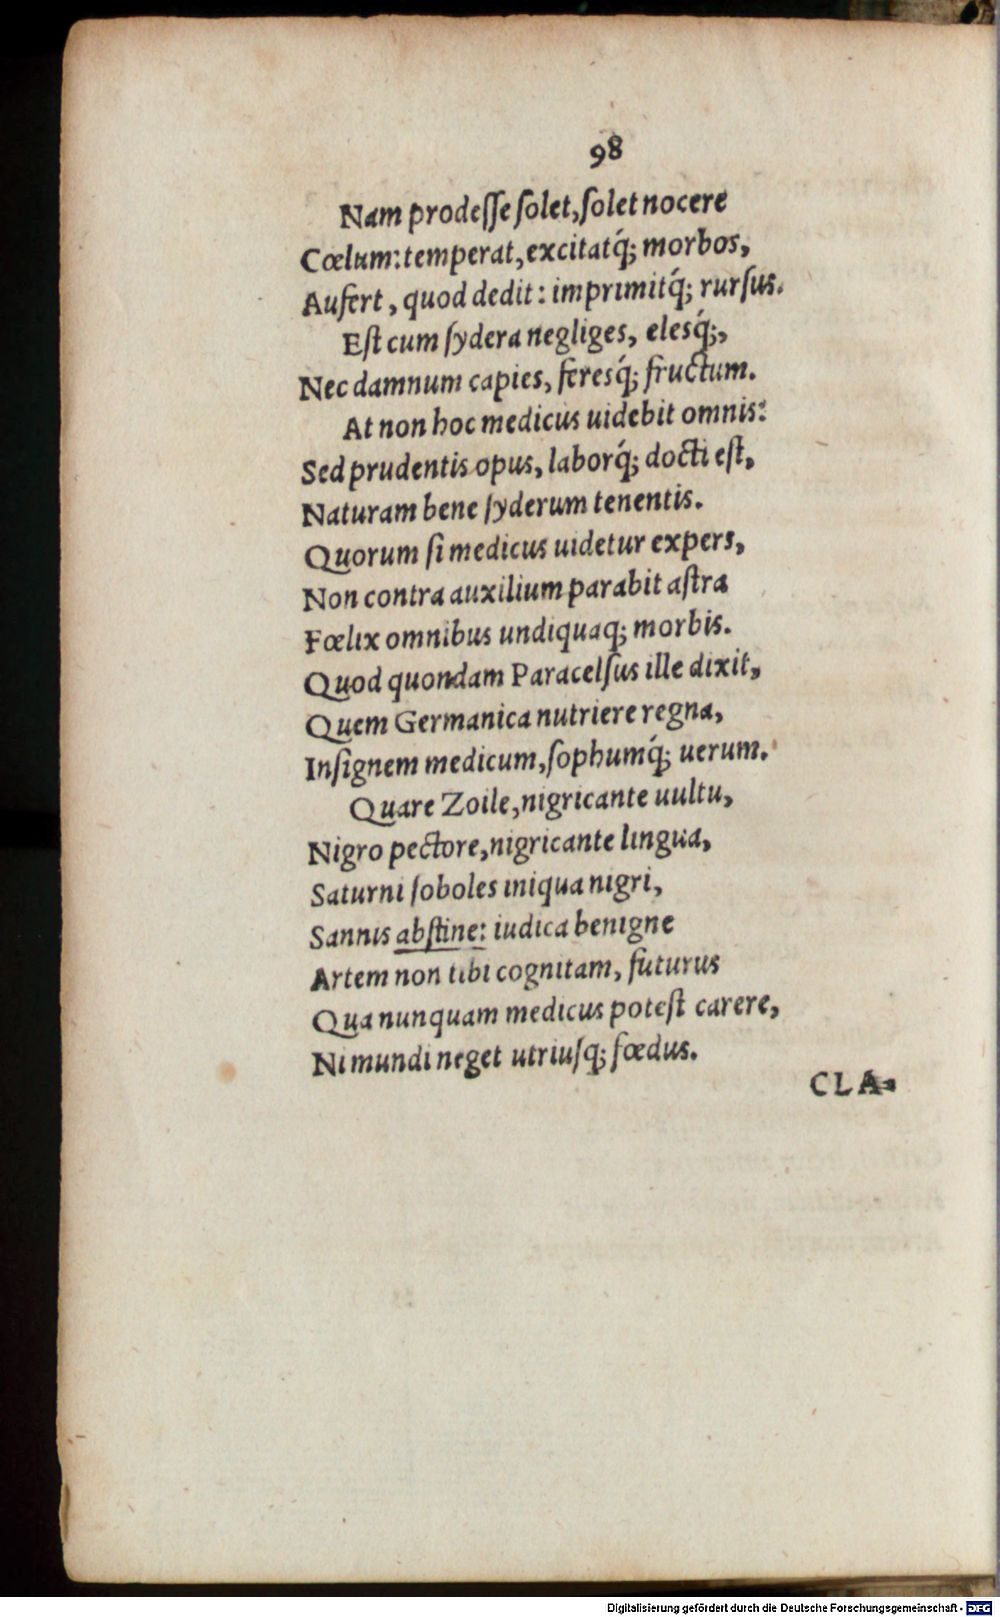 98
Nam prodeſſe ſolet, ſolet nocere
Cœlum: temperat, excitatq́; morbos,
Aufert, quod dedit: imprimitq́; rurſus.
Eſt cum ſydera negliges, elesq́;,
Nec damnum capies, feresq́; fructum.
At non hoc medicus uidebit omnis:
Sed prudentis opus, laborq́; docti eſt,
Naturam bene ſyderum tenentis.
Quorum ſi medicus uidetur expers,
Non contra auxilium parabit aſtra
Fœlix omnibus undiquaq; morbis.
Quod quondam Paracelſus ille dixit,
Quem Germanica nutriere regna,
Inſignem medicum, ſophumq́; uerum.
Quare Zoile, nigricante uultu,
Nigro pectore, nigricante lingua,
Saturni ſoboles iniqua nigri,
Sannis abſtine: iudica benigne
Artem non tibi cognitam, futurus
Qua nunquam medicus poteſt carere,
Ni mundi neget utriuſq; fœdus.
CLA=
Digitalisierung gefördert durch die Deutsche Forschungsgemeinschaft - DFG